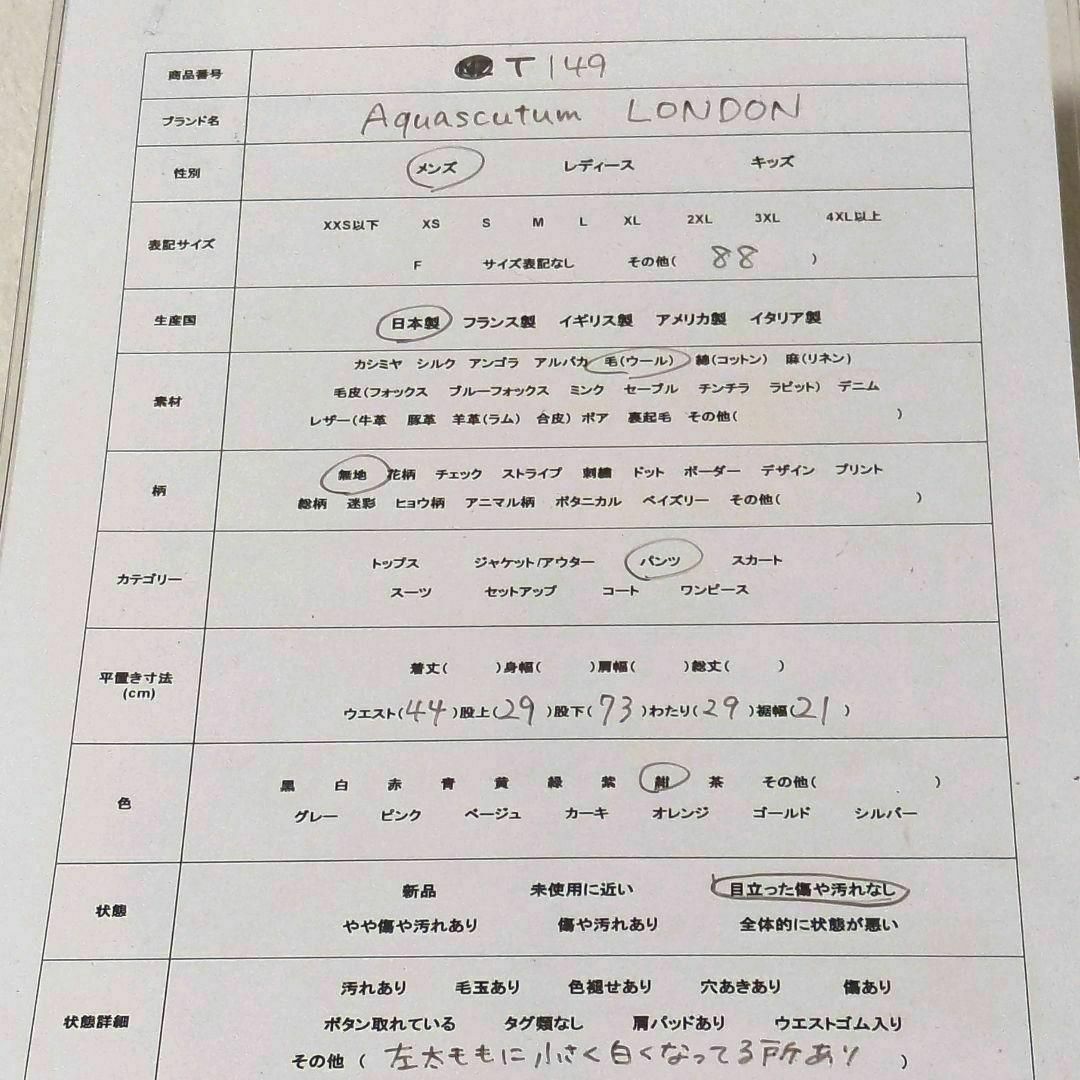 商品番号 T149
ブランド名 Aquascutum LONDON
性別 メンズ レディース キッズ
表記サイズ XXS以下 XS S M L XL 2XL 3XL 4XL以上
F サイズ表記なし その他( 88 )
生産国 日本製 フランス製 イギリス製 アメリカ製 イタリア製
素材 カシミヤ シルク アンゴラ アルパカ 毛(ウール) 綿(コットン) 麻(リネン)
毛皮(フォックス ブルーフォックス ミンク セーブル チンチラ ラビット) デニム
レザー(牛革 豚革 羊革(ラム) 合皮) ボア 裏起毛 その他( )
柄 無地 花柄 チェック ストライプ 刺繍 ドット ボーダー デザイン プリント
総柄 迷彩 ヒョウ柄 アニマル柄 ボタニカル ペイズリー その他( )
カテゴリー トップス ジャケット/アウター パンツ スカート
スーツ セットアップ コート ワンピース
平置き寸法
(cm)
着丈( )身幅( )肩幅( )総丈( )
ウエスト(44)股上(29)股下(73)わたり(29)裾幅(21)
色 黒 白 赤 青 黄 緑 紫 紺 茶 その他( )
グレー ピンク ベージュ カーキ オレンジ ゴールド シルバー
状態 新品 未使用に近い 目立った傷や汚れなし
やや傷や汚れあり 傷や汚れあり 全体的に状態が悪い
状態詳細 汚れあり 毛玉あり 色褪せあり 穴あきあり 傷あり
ボタン取れている タグ類なし 肩パッドあり ウエストゴム入り
その他 ( 左太ももに小さく白くなってる所あり )